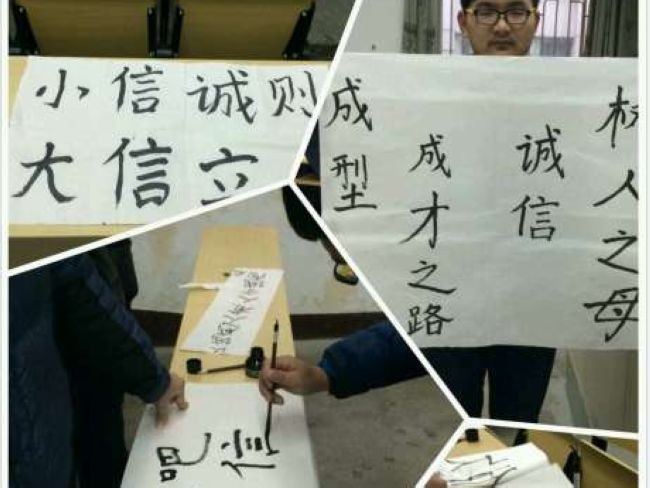 小信诚则
大信立
人之母
诚信
成才之路
成型
吧
信